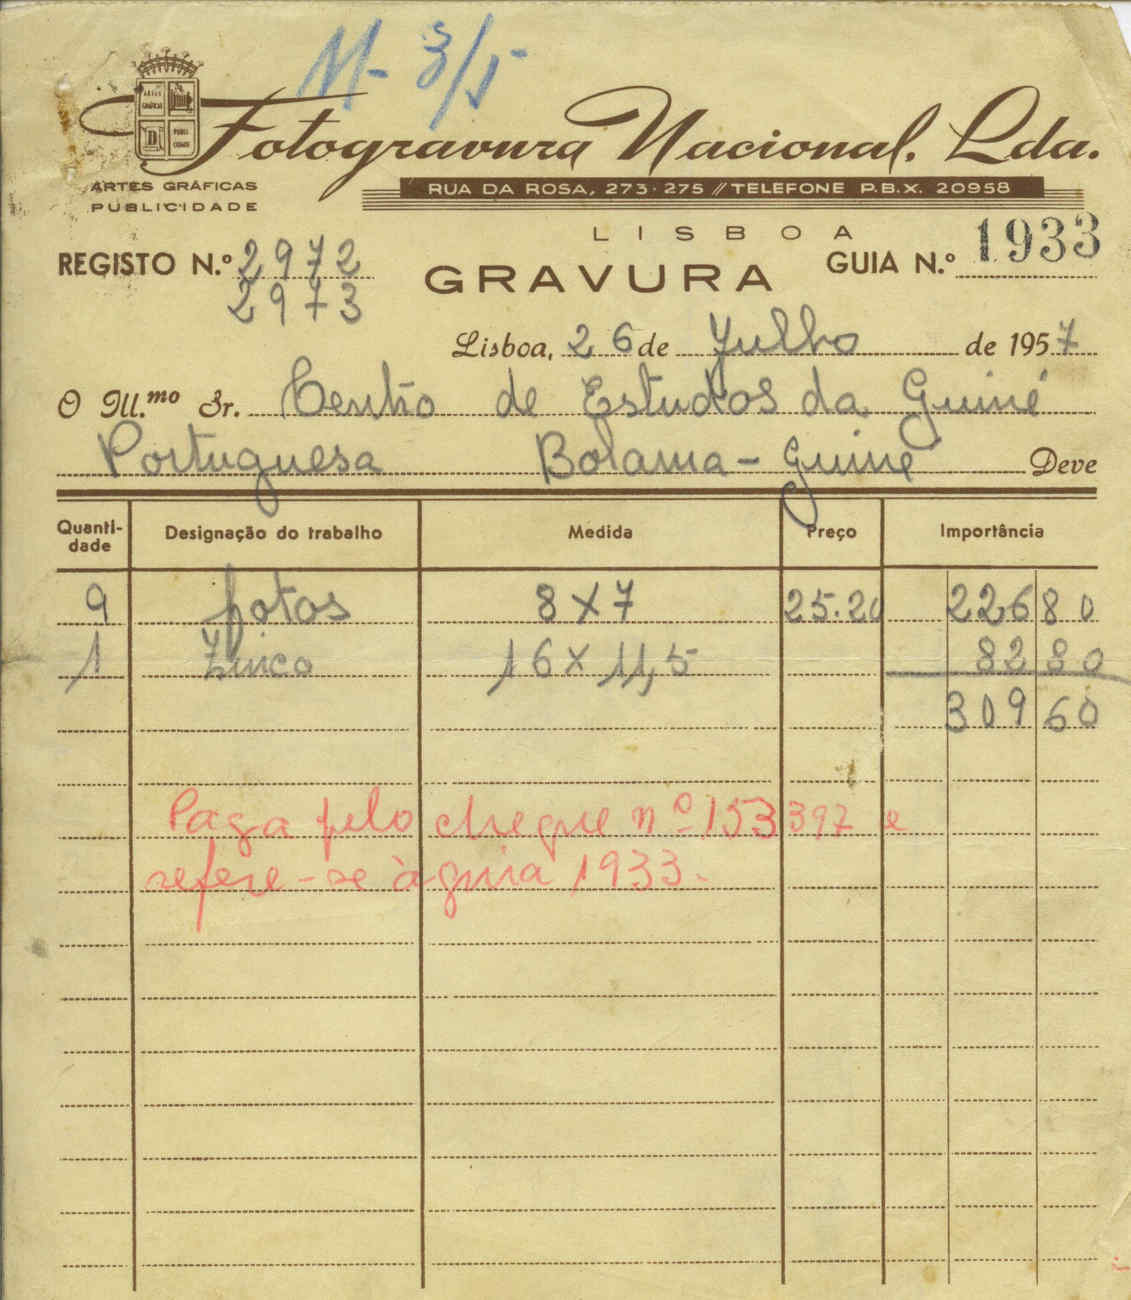 M- 3/5
ARTES GRÁFICAS D PUBLICIDADE
Fotogravura Nacional, Lda.
ARTES GRÁFICAS
PUBLICIDADE
RUA DA ROSA, 273-275 // TELEFONE P.B.X. 20958
LISBOA
REGISTO N.º 2972
2973
GRAVURA
GUIA N.º 1933
Lisboa, 26 de Julho de 1957
O Ill.mo Sr. Centro de Estudos da Guiné
Portuguesa Bolama - Guiné Deve
Quanti-dade Designação do trabalho Medida Preço Importância
9 fotos 8 x 7 25.20 226 80
1 Zinco 16 x 11,5 82 80
309 60
Paga pelo cheque nº 153397 e
refere-se à guia 1933.